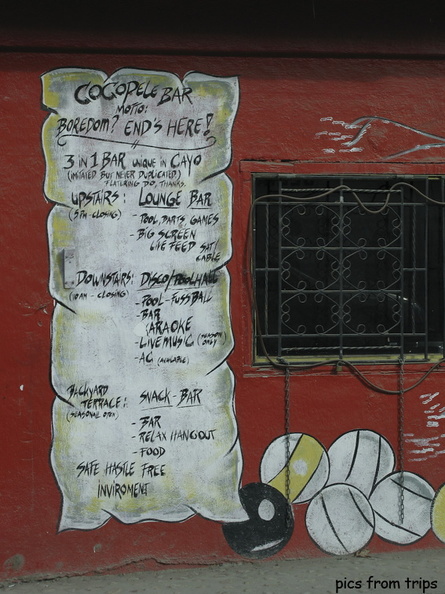 COCOPELE BAR
MOTTO:
BOREDOM? END'S HERE!
3 IN 1 BAR UNIQUE IN CAYO
(IMITATED BUT NEVER DUPLICATED)
FEATURING DO, THANKS.
UPSTAIRS: LOUNGE BAR
(5PM-CLOSING)
- POOL, DARTS, GAMES
- BIG SCREEN
LIVE FEED SAT/
CABLE
DOWNSTAIRS: DISCO/POOLHALL
(10AM - CLOSING)
- POOL-FUSSBALL
- BAR
- KARAOKE
- LIVE MUSIC (SEASON ONLY)
- AC (AVAILABLE)
BACKYARD
TERRACE: SNACK-BAR
(SEASONAL OPEN)
- BAR
- RELAX HANGOUT
- FOOD
SAFE HASTLE FREE
INVIROMENT
pics from trips